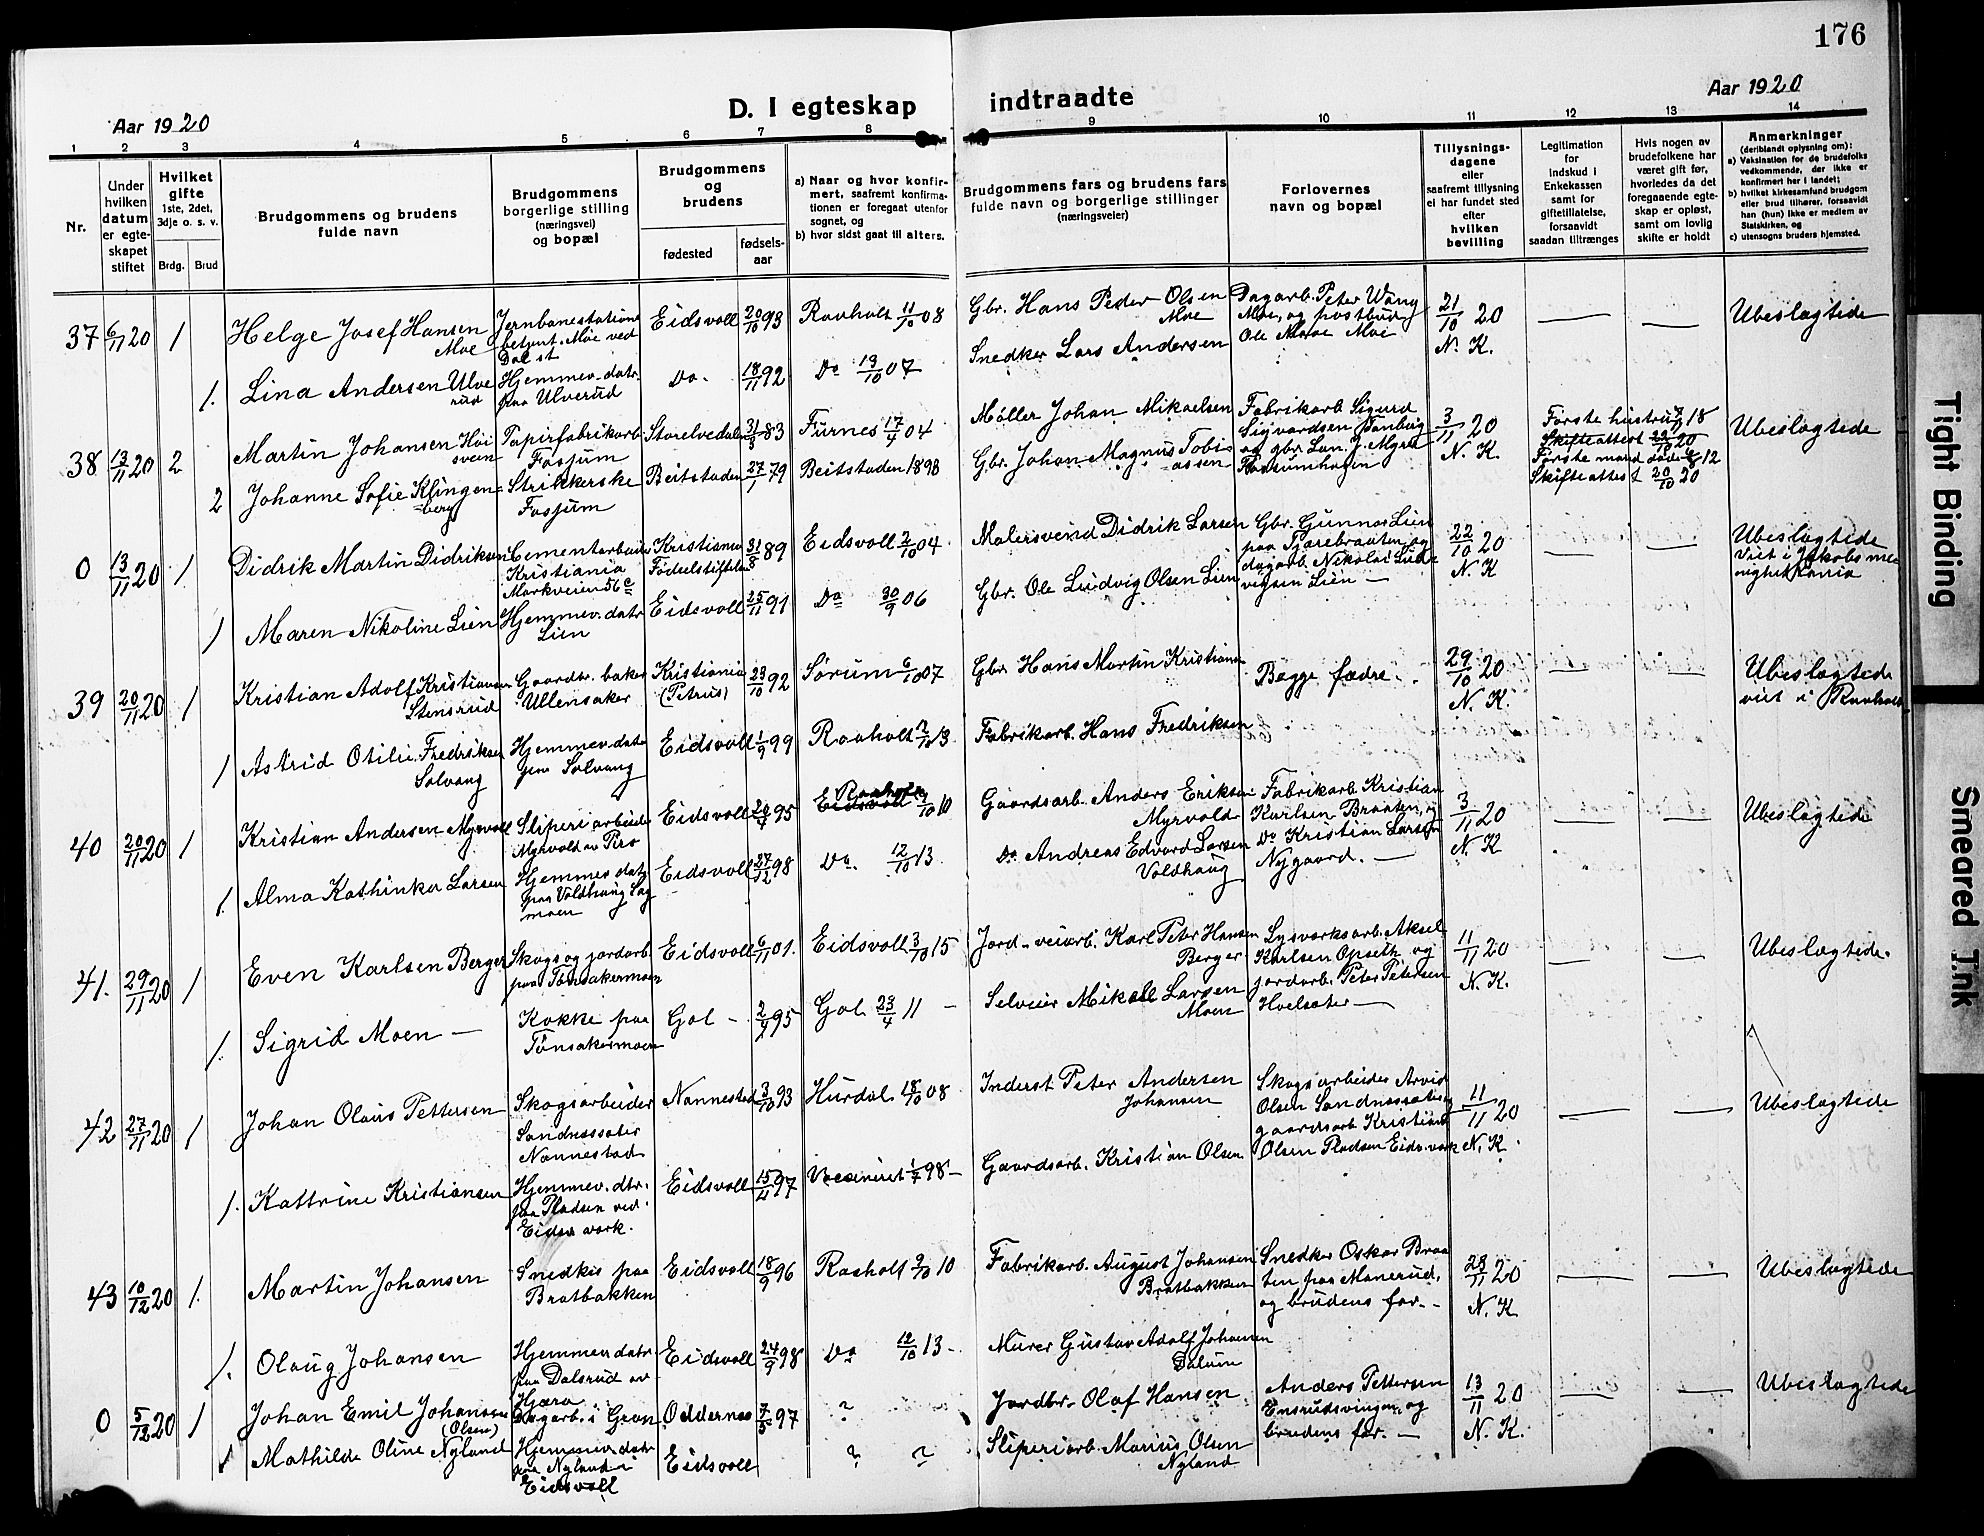 176
Aar 1920
D. I egteskap indtraadte
Aar 1920
1 2 3 4 5 6 7 8 9 10 11 12 13 14
Nr.
Under hvilken datum er egteskapet stiftet
Hvilket gifte 1ste, 2det, 3dje o. s. v.
Brdg. Brud
Brudgommens og brudens fulde navn
Brudgommens borgerlige stilling (næringsvei) og bopæl
Brudgommens og brudens
fødested
fødselsaar
a) Naar og hvor konfirmert, saafremt konfirmationen er foregaat utenfor sognet, og
b) hvor sidst gaat til alters.
Brudgommens fars og brudens fars fulde navn og borgerlige stillinger (næringsveier)
Forlovernes navn og bopæl
Tillysningsdagene eller saafremt tillysning ei har fundet sted efter hvilken bevilling
Legitimation for indskud i Enkekassen samt for giftetillatelse, forsaavidt saadan tiltrænges
Hvis nogen av brudefolkene har været gift før, hvorledes da det foregaaende egteskap er opløst, samt om lovlig skifte er holdt
Anmerkninger (deriblandt oplysning om):
a) Vaksination for de brudefolks vedkommende, der ikke er konfirmert her i landet;
b) hvilket kirkesamfund brudgom eller brud tilhører, forsaavidt han (hun) ikke er medlem av Statskirken, og
c) utensogns bruders hjemsted.
37 6/11 20 1 Helge Josef Hansen Moe
Jernbanestations betjent. Moe ved Dal st
Eidsvoll 20/10 93 Raaholt 11/10 08
Gbr. Hans Peder Olsen Moe
Dagarb. Peter Wang Moe, og postbud Ole Moe
21/10 20 N. K. — — Ubeslægtede
1. Lina Andersen Ulverud
Hjemmev. datr. paa Ulverud
Do. 18/11 92 Do 13/10 07
Snedker Lars Andersen
38 13/11 20 2 Martin Johansen Høisveen
Papirfabrikarb. Fossum
Storelvedalen 31/3 83 Furnes 17/4 04
Møller Johan Mikaelsen
Fabrikarb. Sigurd Sigvardsen og gbr. Lau. J. Myra
3/11 20 N. K.
Første hustru 18
Skifteattest 20
Første mand død 12
Skifteattest 20/10 20
Ubeslægtede
2 Johanne Sofie Klingenberg
Strikkerske Fossum
Beitstaden 27/1 79 Beitstaden 1893
Gbr. Johan Magnus Tobiassen
0 13/11 20 1 Didrik Martin Didriksen
Cementarbeider Kristiania Markveien 56 c
Kristiania Fødselstiftelse 31/8 89 Eidsvoll 2/10 04
Malersvend Didrik Larsen
Gbr. Gunnar Lien paa Tjærebraaten og dagarb. Nikolai Ludvigsen Lien —
22/10 20 N. K — —
Ubeslægtede
Viet i Jakobs menighet Krania
1 Maren Nikoline Lien
Hjemmev. datr. Lien
Eidsvoll 25/11 91 Do 30/9 06
Gbr. Ole Ludvig Olsen Lien
39 20/11 20 1 Kristian Adolf Kristiansen Stensrud
Gaardbr. baker Ullensaker
Kristiania (Petrus) 23/10 92 Sørum 6/10 07
Gbr. Hans Martin Kristiansen
Begge fædre.
29/10 20 N. K. — —
Ubeslægtede
viet i Raaholt
1 Astrid Otilie Fredriksen Solvang
Hjemmev. datr. Solvang
Eidsvoll 1/9 99 Raaholt 13
Fabrikarb. Hans Fredriksen
40 20/11 20 1 Kristian Andersen Myrvold
Sliperiarbeider Myrvold
Eidsvoll 20/7 95 Raaholt 10
Gaardsarb. Anders Eriksen Myrvold
Fabrikarb. Kristian Karlsen Braaten, og Do Kristian Larsen Nygaard. —
3/11 20 N. K — — Ubeslægtede
1. Alma Kathinka Larsen
Hjemmev. datr. paa Voldhaug Sagmoen
Eidsvoll 27/12 98 Do. 12/10 13
Do Andreas Edvard Larsen Voldhaug
41. 29/11 20 1 Even Karlsen Berger
Skogs og jordarb. paa Tønsakermoen
Eidsvoll 6/11 01. Eidsvoll 3/10 15
Jord- veiarb. Karl Peter Hansen Berger
Lysverksarb. Aksel Karlsen Opseth og jordarb. Peter Petersen Hoelsæter —
11/11 20 N. K. — — Ubeslægtede.
1. Sigrid Moen —
Kokke paa Tønsakermoen
Gol – 2/4 95 Gol 23/4 11 –
Selveier Mikael Larsen Moen
42 27/11 20 1 Johan Olaus Pettersen
Skogsarbeider Sandnessæter Nannestad
Nannestad 3/10 93 Hurdal 18/10 08
Inderst Peter Andersen Johansen
Skogsarbeider Arvid Olsen Sandnessæter gaardsarb. Kristian Olsen Pladsen Eidsverk
11/11 20 N. K. — — Ubeslægtede
1. Kattrine Kristiansen
Hjemmev. dtr. paa Pladsen ved Eidsv. verk.
Eidsvoll 15/4 97 Vaccineret 1/7 98 –
Gaardsarb. Kristian Olsen.
43 10/12 20 1. Martin Johansen
Snedker paa Bratbakken
Eidsvoll 18/9 96 Raaholt 9/10 10
Fabrikarb. August Johansen Bratbakken
Snedker Oskar Braaten paa Manerud, og brudens far. –
28/11 20 N. K — — Ubeslægtede
1. Olaug Johansen
Hjemmev. datr. paa Dalsrud
Eidsvoll 24/9 98 Do 12/10 13 –
Murer Gustav Adolf Johansen Dalum
0 5/12 20 1 Johan Emil Johansen (Olsen)
Dagarb. i Gran
Oddernes 7/5 97 ?
Jordbr. Olaf Hansen
Anders Pettersen Ensrudsvingen, og brudens far. —
13/11 20 N. K. — — Ubeslægtede
1 Mathilde Oline Nyland
Hjemmev. datr. paa Nyland i Eidsvoll
Eidsvoll ? ?
Sliperiarb. Marius Olsen Nyland
Tight Binding
Smeared Ink